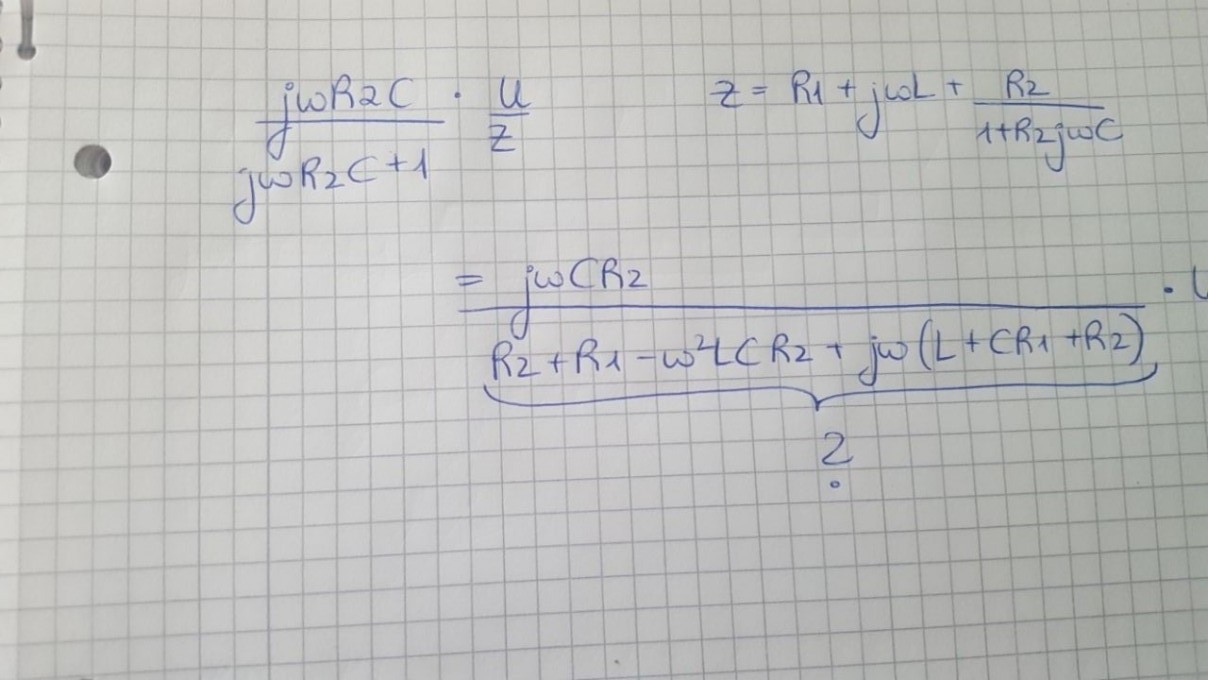 jwR2C / jwR2C+1 · U / Z
Z = R1 + jωL + R2 / 1+R2jωC
= jωCR2 / R2+R1-ω²LCR2 + jω(L+CR1+R2) ·
?